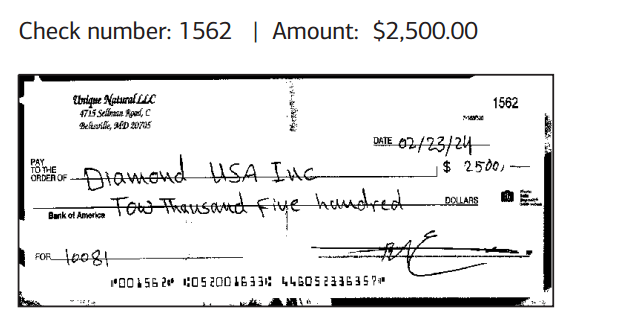 Check number: 1562 | Amount: $2,500.00
Unique Natural LLC
4715 Sellman Road, C
Beltsville, MD 20705
1562
DATE 02/23/24
PAY TO THE ORDER OF Diamond USA Inc $ 2500,—
Tow Thousand Five hundred DOLLARS
Bank of America
FOR 10081
⑈001562⑈ ⑆052001633⑆ 446052336357⑈